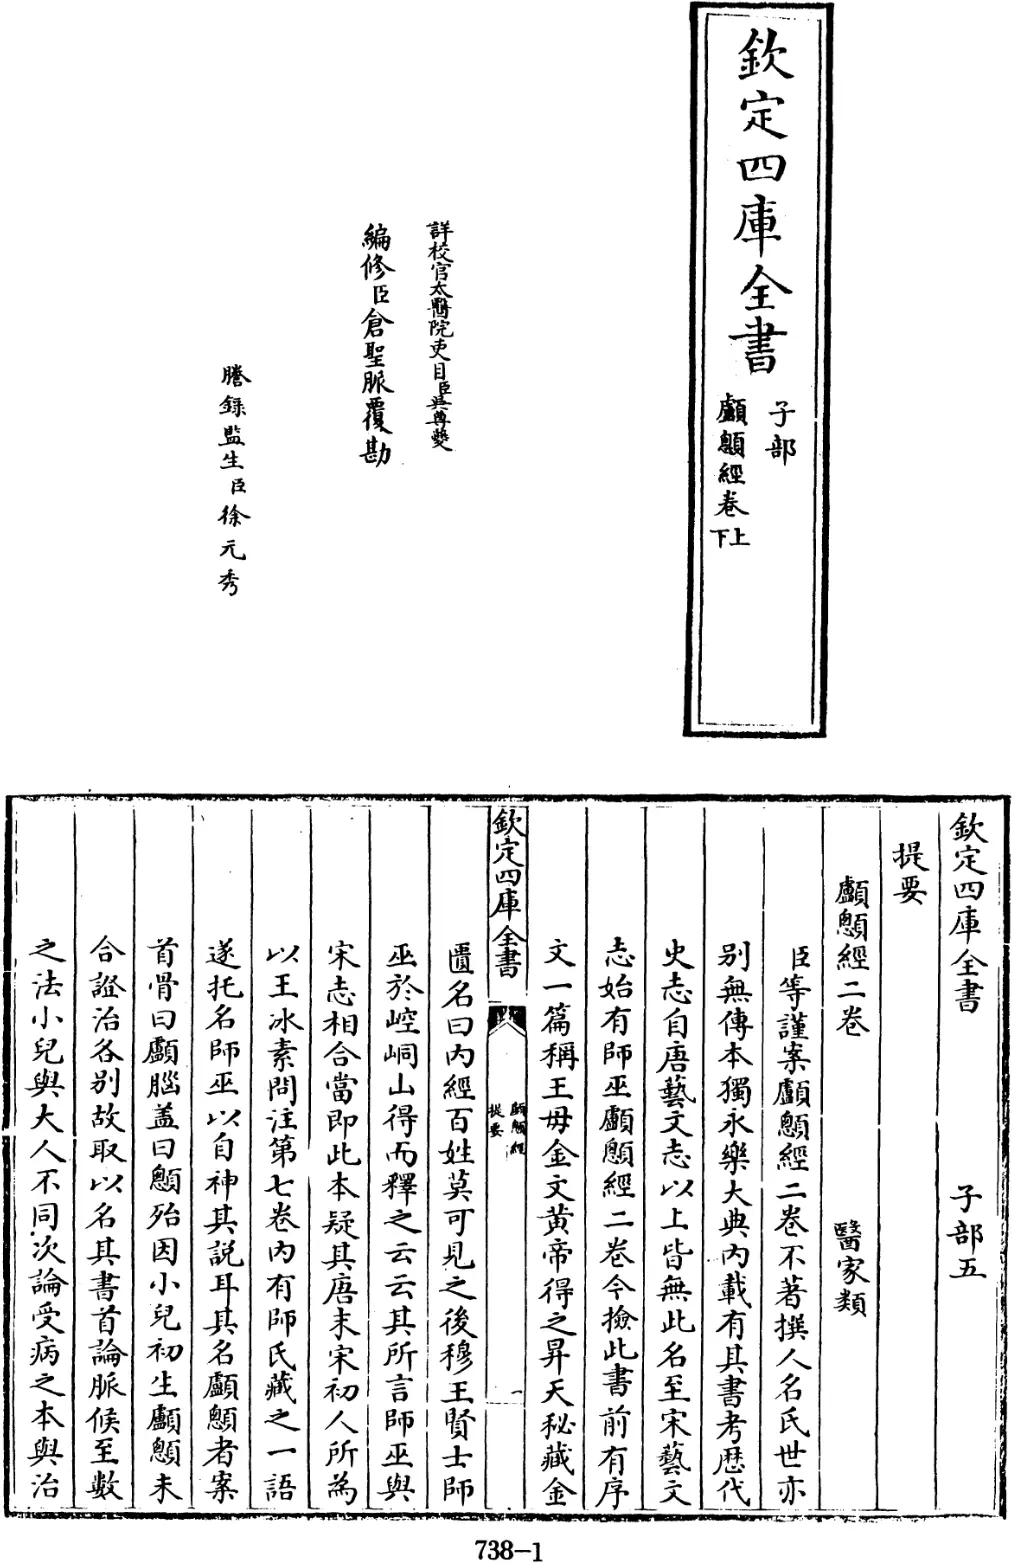 欽定四庫全書
子部
顱顖經卷上
下
詳校官太醫院吏目臣吳尊夔
編修臣倉聖脈覆勘
謄錄監生臣徐元秀
欽定四庫全書 子部五
提要
顱顖經二卷 醫家類
臣等謹案顱顖經二卷不著撰人名氏世亦
别無傳本獨永樂大典内載有其書考歴代
史志自唐藝文志以上皆無此名至宋藝文
志始有師巫顱顖經二卷今撿此書前有序
文一篇稱王母金文黄帝得之昇天秘藏金
欽定四庫全書
顱顖經
提要
一
匱名曰内經百姓莫可見之後穆王賢士師
巫於崆峒山得而釋之云云其所言師巫與
宋志相合當即此本疑其唐末宋初人所為
以王冰素問注第七卷内有師氏藏之一語
遂托名師巫以自神其説耳其名顱顖者案
首骨曰顱腦蓋曰顖殆因小兒初生顱顖未
合證治各别故取以名其書首論脈候至數
之法小兒與大人不同次論受病之本與治
738-1